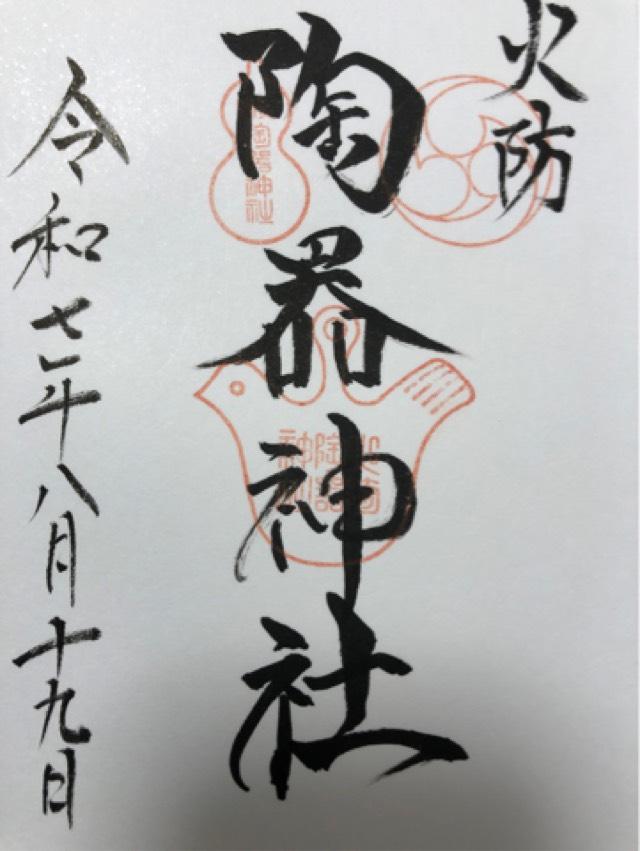 火防
陶器神社
令和七年八月十九日
陶器神社
火防
陶器
神社